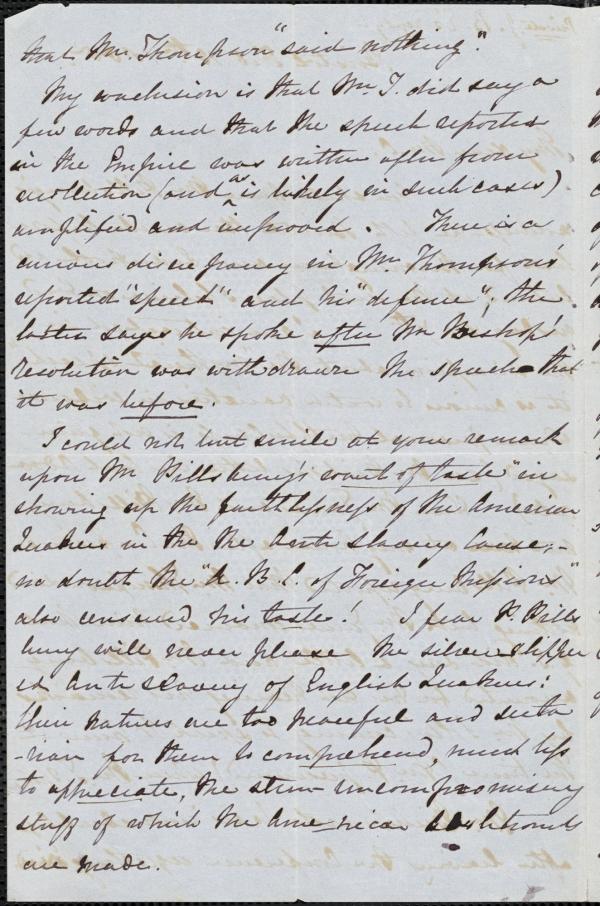 that Mr. Thompson "said nothing".
My conclusion is that Mr T. did say a
few words and that the speech reported
in the Empire was written after from
recollection (and ^as is likely in such cases)
amplified and improved. There is a
curious discrepancy in Mr. Thompson's
reported "speech" and his "defence"; the
latter says he spoke after Mr Bishop's
resolution was withdrawn the speech that
it was before.
I could not but smile at your remark
upon Mr Pillsbury's want of taste "in
showing up the faithlessness of the American
Quakers in the the Anti Slavery Cause,-
no doubt the "A. B. C. of Foreign Missions"
also censured his taste! I fear P. Pills
bury will never please the silver slipper
ed Anti slavery of English Quakers:
their natures are too peaceful and secta
-rian for them to comprehend, much less
to appreciate, the stern uncompromising
stuff of which the Ame-rican abolitionists
are made.